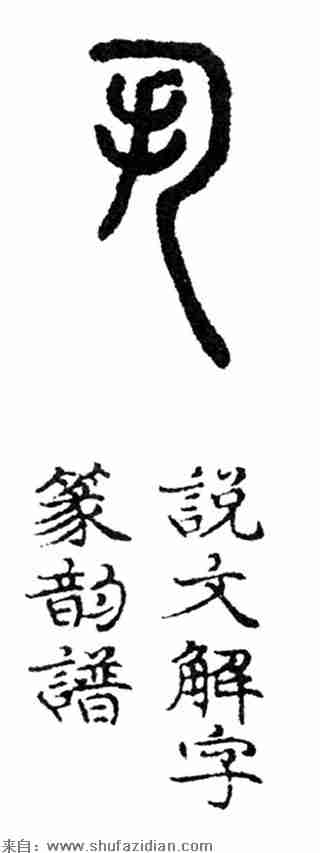 說文解字
篆韵譜
来自：www.shufazidian.com